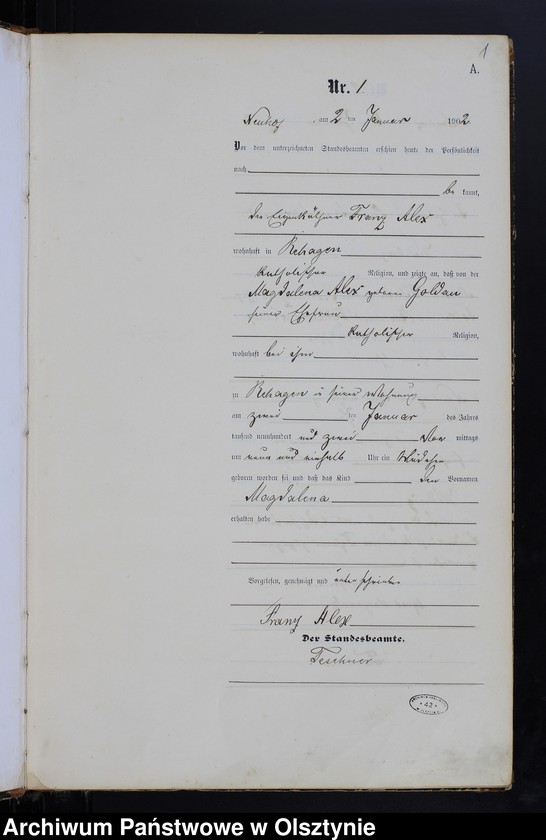 1
A.
Nr. 1.
Neuhof, am 2 ten Januar 1902
Vor dem unterzeichneten Standesbeamten erschien heute der Persönlichkeit
nach
be kannt,
der Eigenkäthner Franz Alex
wohnhaft in Rehagen
katholischer Religion, und zeigte an, daß von der
Magdalena Alex geborne Goldau
seiner Ehefrau
katholischer Religion,
wohnhaft bei ihm
zu Rehagen in seiner Wohnung
am zwei ten Januar des Jahres
tausend neunhundert und zwei Vor mittags
um neun und einhalb Uhr ein Mädchen
geboren worden sei und daß das Kind den Vornamen
Magdalena
erhalten habe
Vorgelesen, genehmigt und unterschrieben
Franz Alex
Der Standesbeamte.
Teschner
42
Archiwum Państwowe w Olsztynie